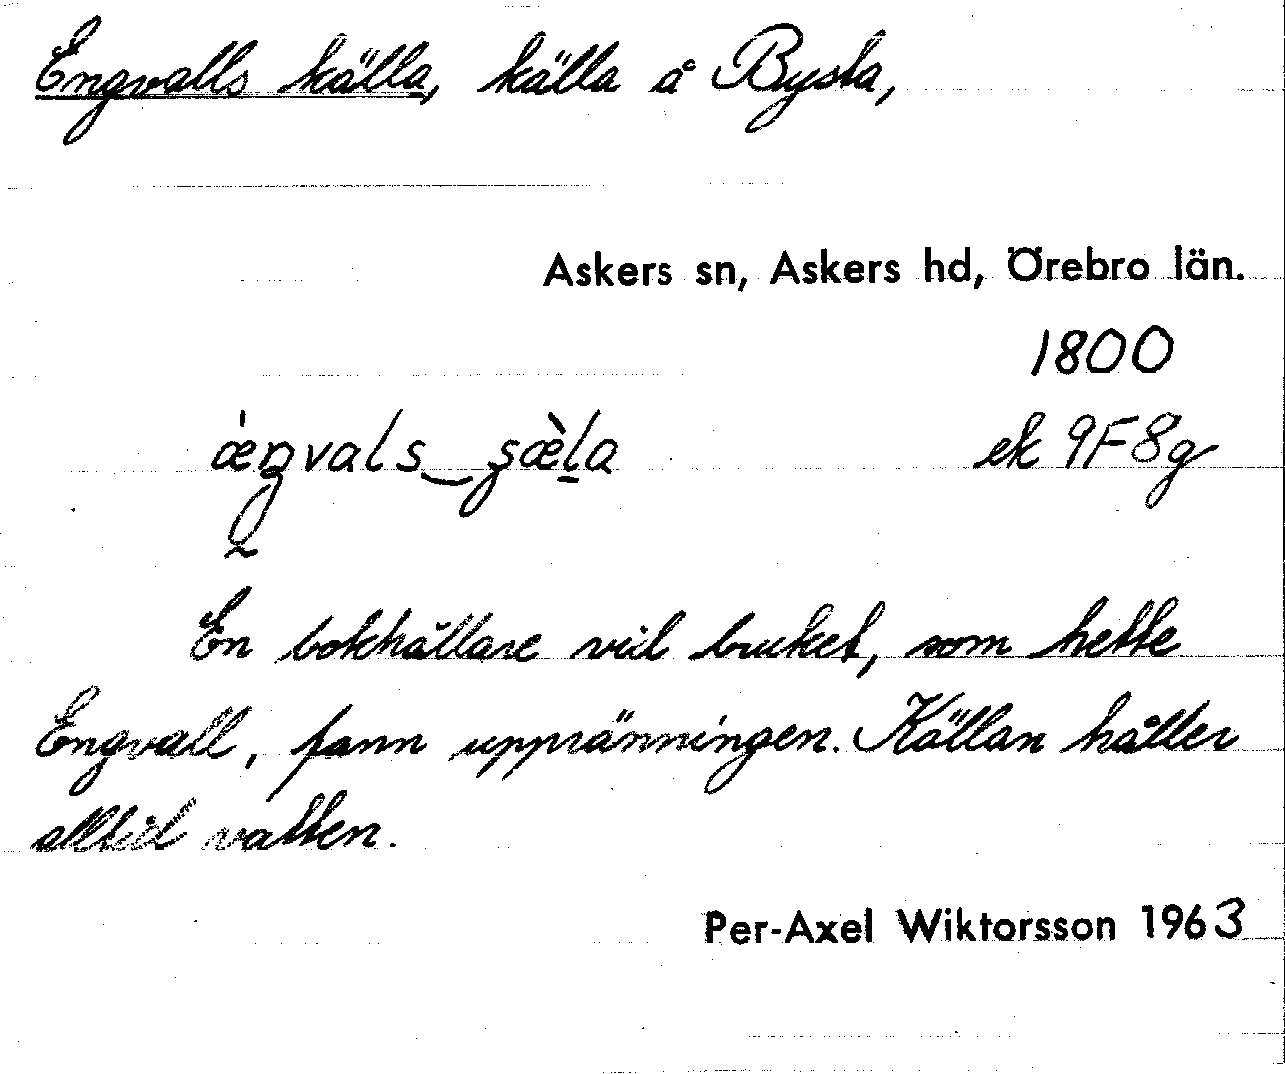 Engvalls källa, källa å Bysta,
Askers sn, Askers hd, Örebro län.
1800
ǽŋvals‿şæ̀l̠a ek 9F8g
En bokhållare vid bruket, som hette
Engvall, fann uppränningen. Källan håller
alltid vatten.
Per-Axel Wiktorsson 1963